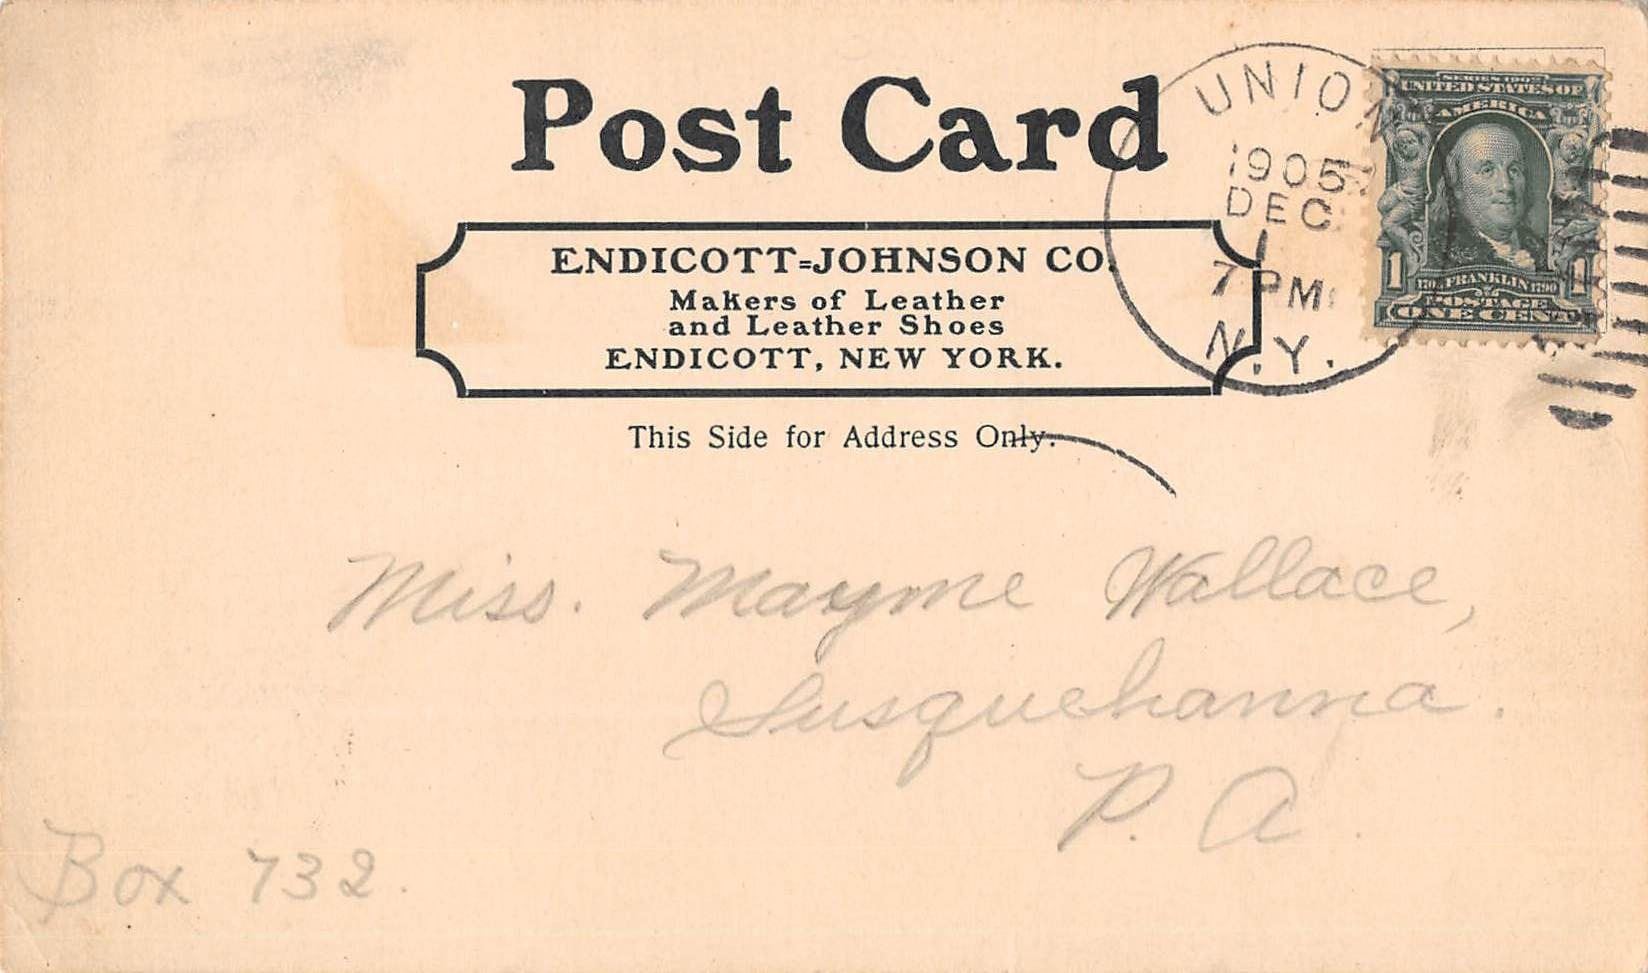 Post Card
ENDICOTT=JOHNSON CO.
Makers of Leather
and Leather Shoes
ENDICOTT, NEW YORK.
This Side for Address Only.
UNION
1905
DEC
1
7 PM
N.Y.
SERIES 1902
UNITED STATES OF
AMERICA
1 FRANKLIN 1790 1
POSTAGE
ONE CENT
Miss. Mayme Wallace,
Susquehanna.
P. A.
Box 732.